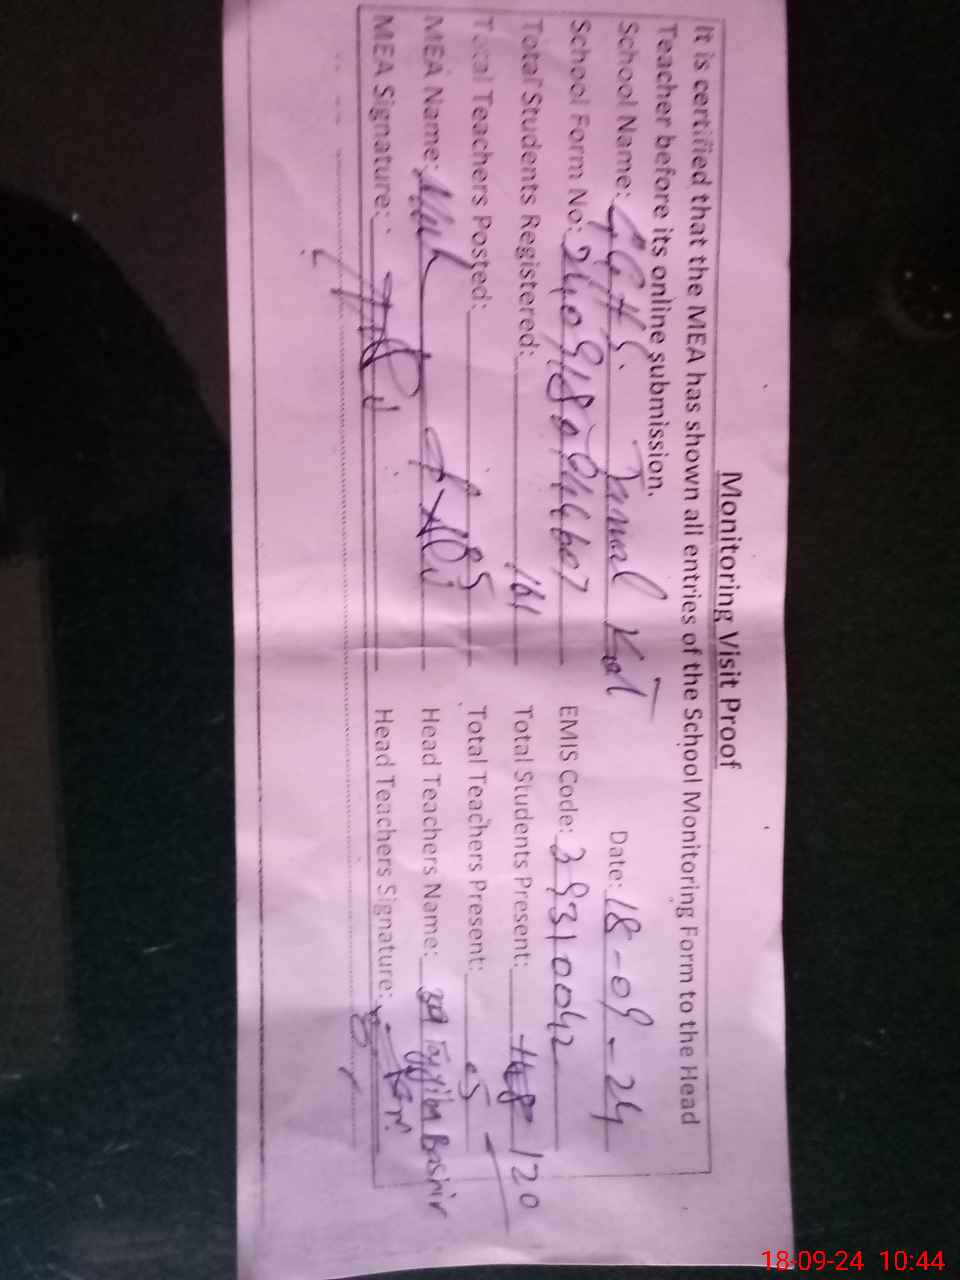 Monitoring Visit Proof
It is certified that the MEA has shown all entries of the School Monitoring Form to the Head
Teacher before its online submission.
School Name: GGHS. Jamal Kot Date: 18-09-24
School Form No: EMIS Code: 39310042
Total Students Registered: 161 Total Students Present: 148 120
Total Teachers Posted: 05 Total Teachers Present: 05
MEA Name: Head Teachers Name: Tayyiba Bashir
MEA Signature: Head Teachers Signature:
18-09-24 10:44